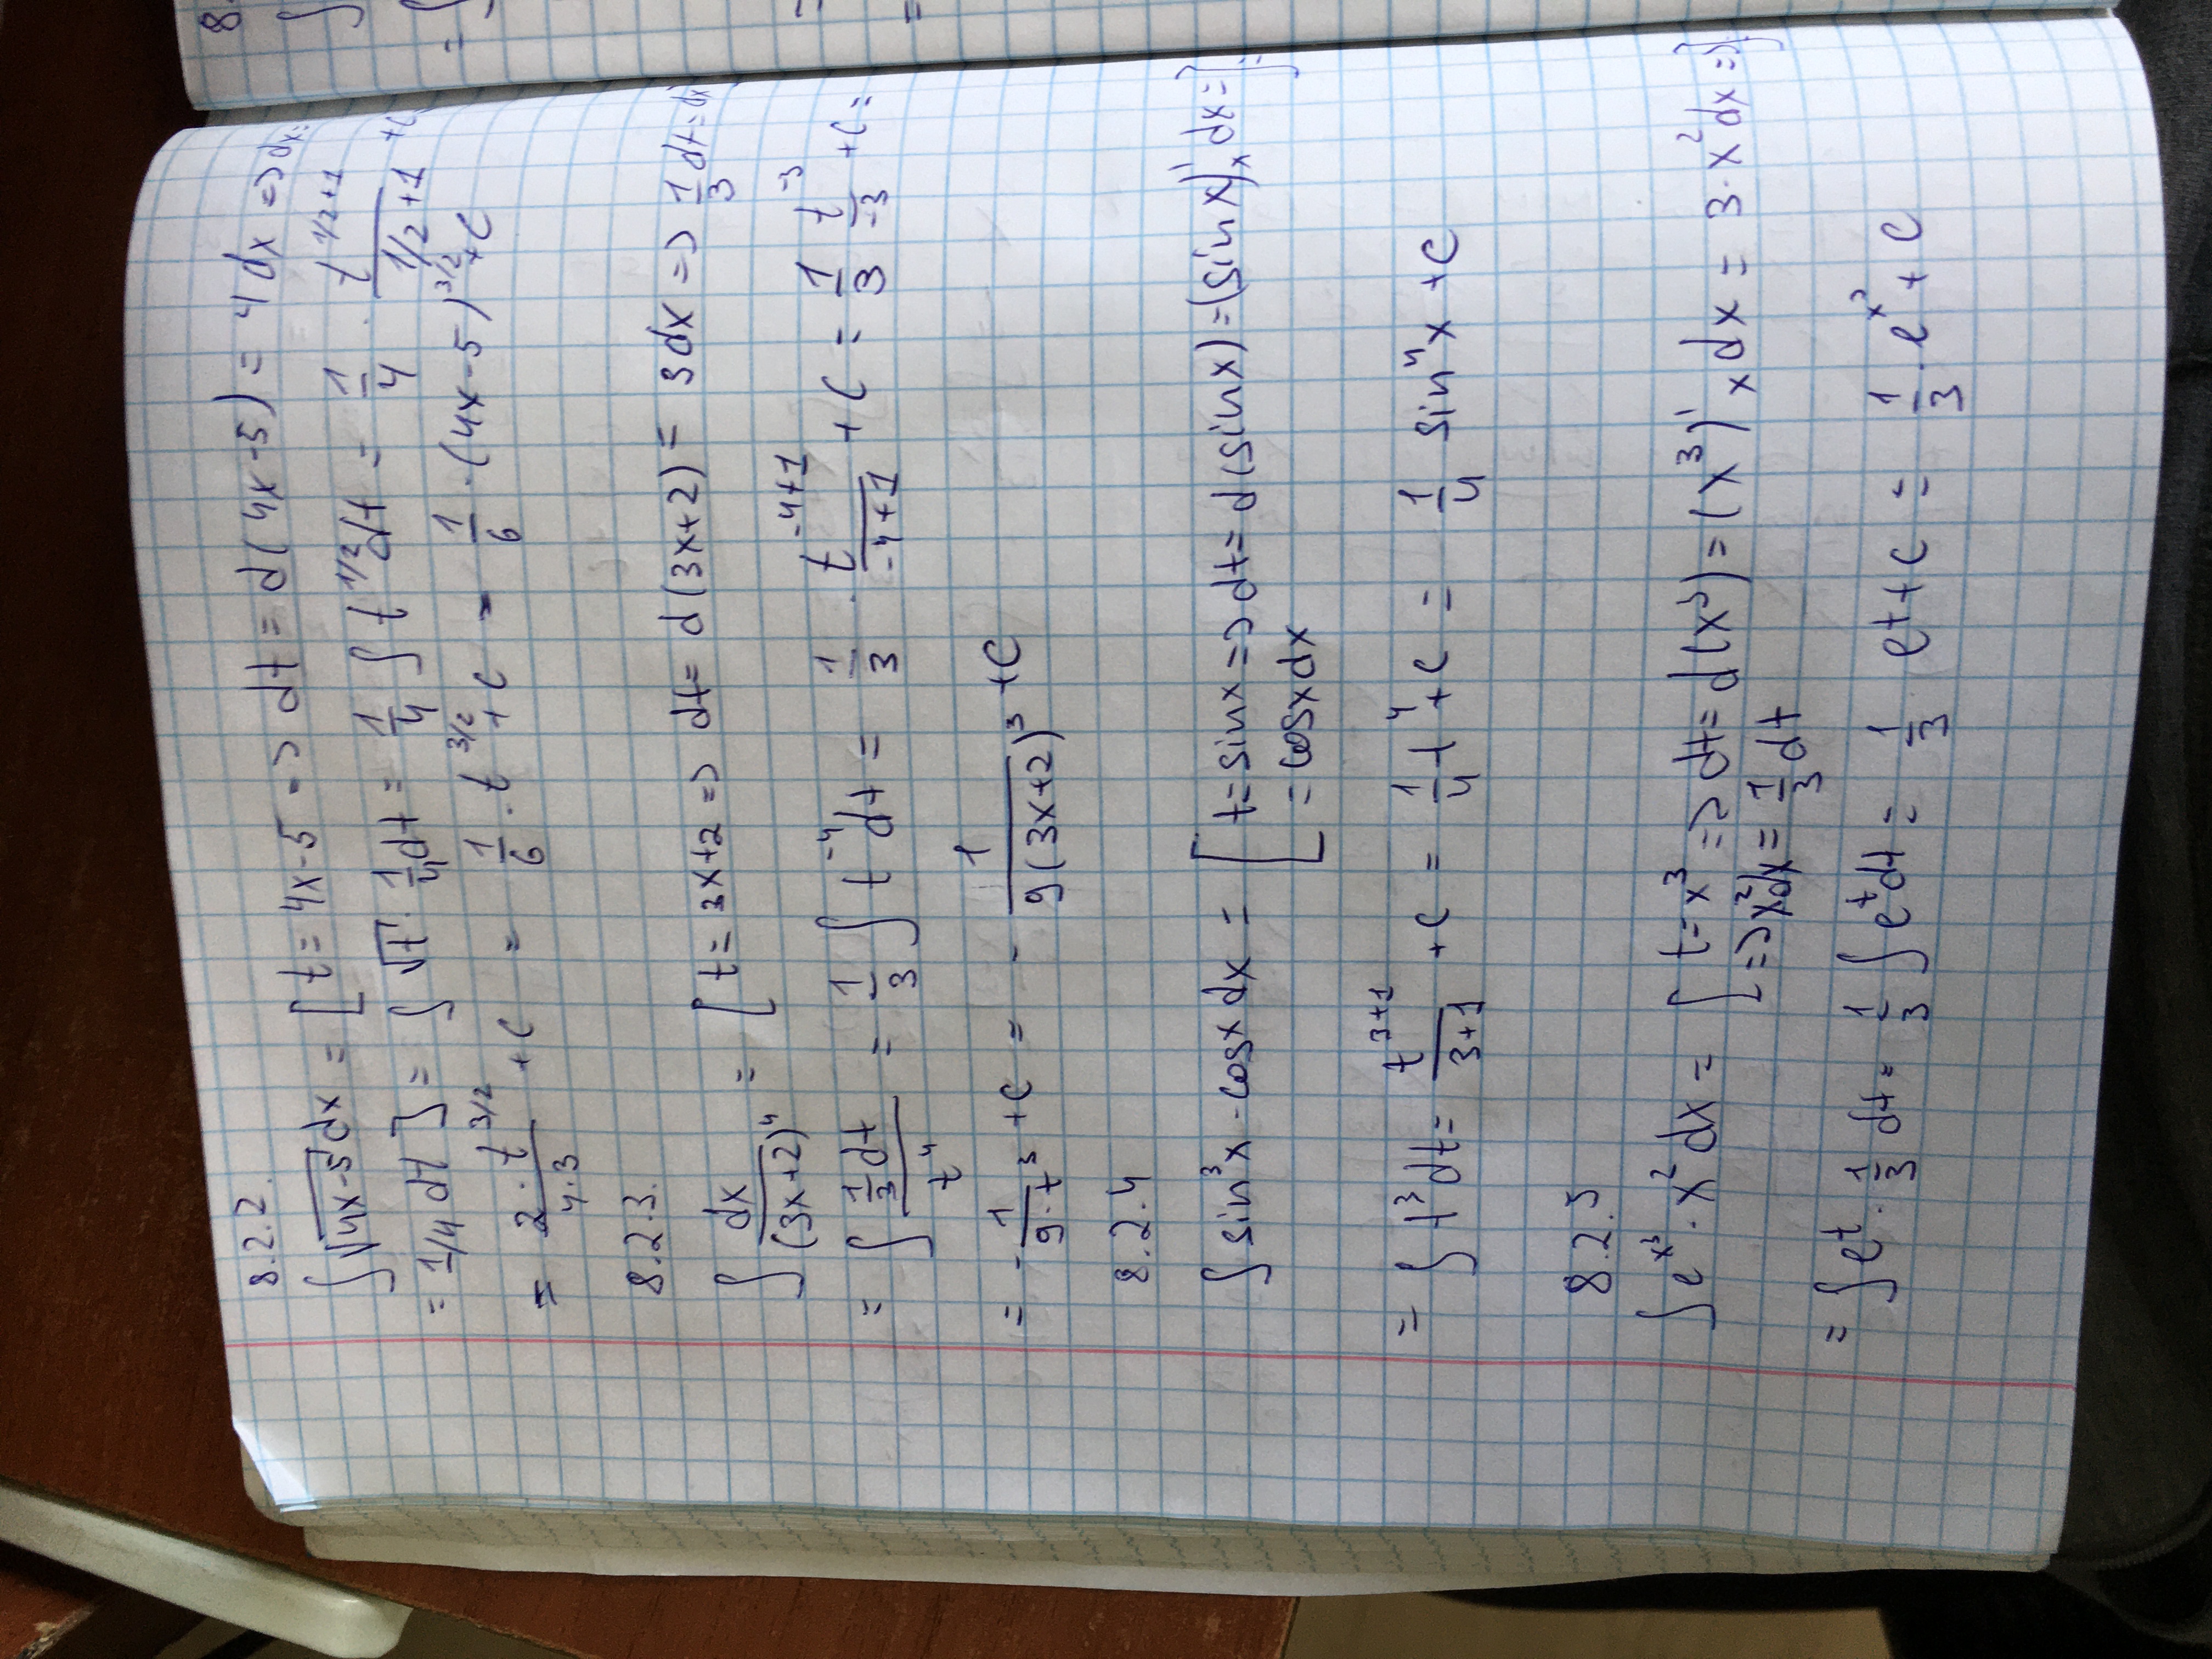 8.2.2.
∫√(4x-5) dx = [t = 4x-5 => dt = d(4x-5) = 4dx => dx =
= 1/4 dt] = ∫ √t · 1/4 dt = 1/4 ∫ t^(1/2) dt = 1/4 · t^(1/2+1)/(1/2+1) + C
= (2 · t^(3/2))/(4·3) + C = 1/6 · t^(3/2) + C = 1/6 · (4x-5)^(3/2) + C
8.2.3.
∫ dx/(3x+2)^4 = [t = 3x+2 => dt = d(3x+2) = 3dx => 1/3 dt = dx
= ∫ (1/3 dt)/t^4 = 1/3 ∫ t^(-4) dt = 1/3 · t^(-4+1)/(-4+1) + C = 1/3 t^(-3)/(-3) + C =
= - 1/(9·t^3) + C = - 1/(9(3x+2)^3) + C
8.2.4
∫ sin^3 x · cosx dx = [t = sinx => dt = d(sinx) = (sinx)'_x dx =
= cosx dx] =
= ∫ t^3 dt = t^(3+1)/(3+1) + C = 1/4 t^4 + C = 1/4 sin^4 x + C
8.2.5
∫ e^(x^3) · x^2 dx = [t = x^3 => dt = d(x^3) = (x^3)'_x dx = 3·x^2 dx =>
=> x^2 dx = 1/3 dt]
= ∫ e^t · 1/3 dt = 1/3 ∫ e^t dt = 1/3 e^t + C = 1/3 · e^(x^3) + C
8.
∫
= ∫
=
=